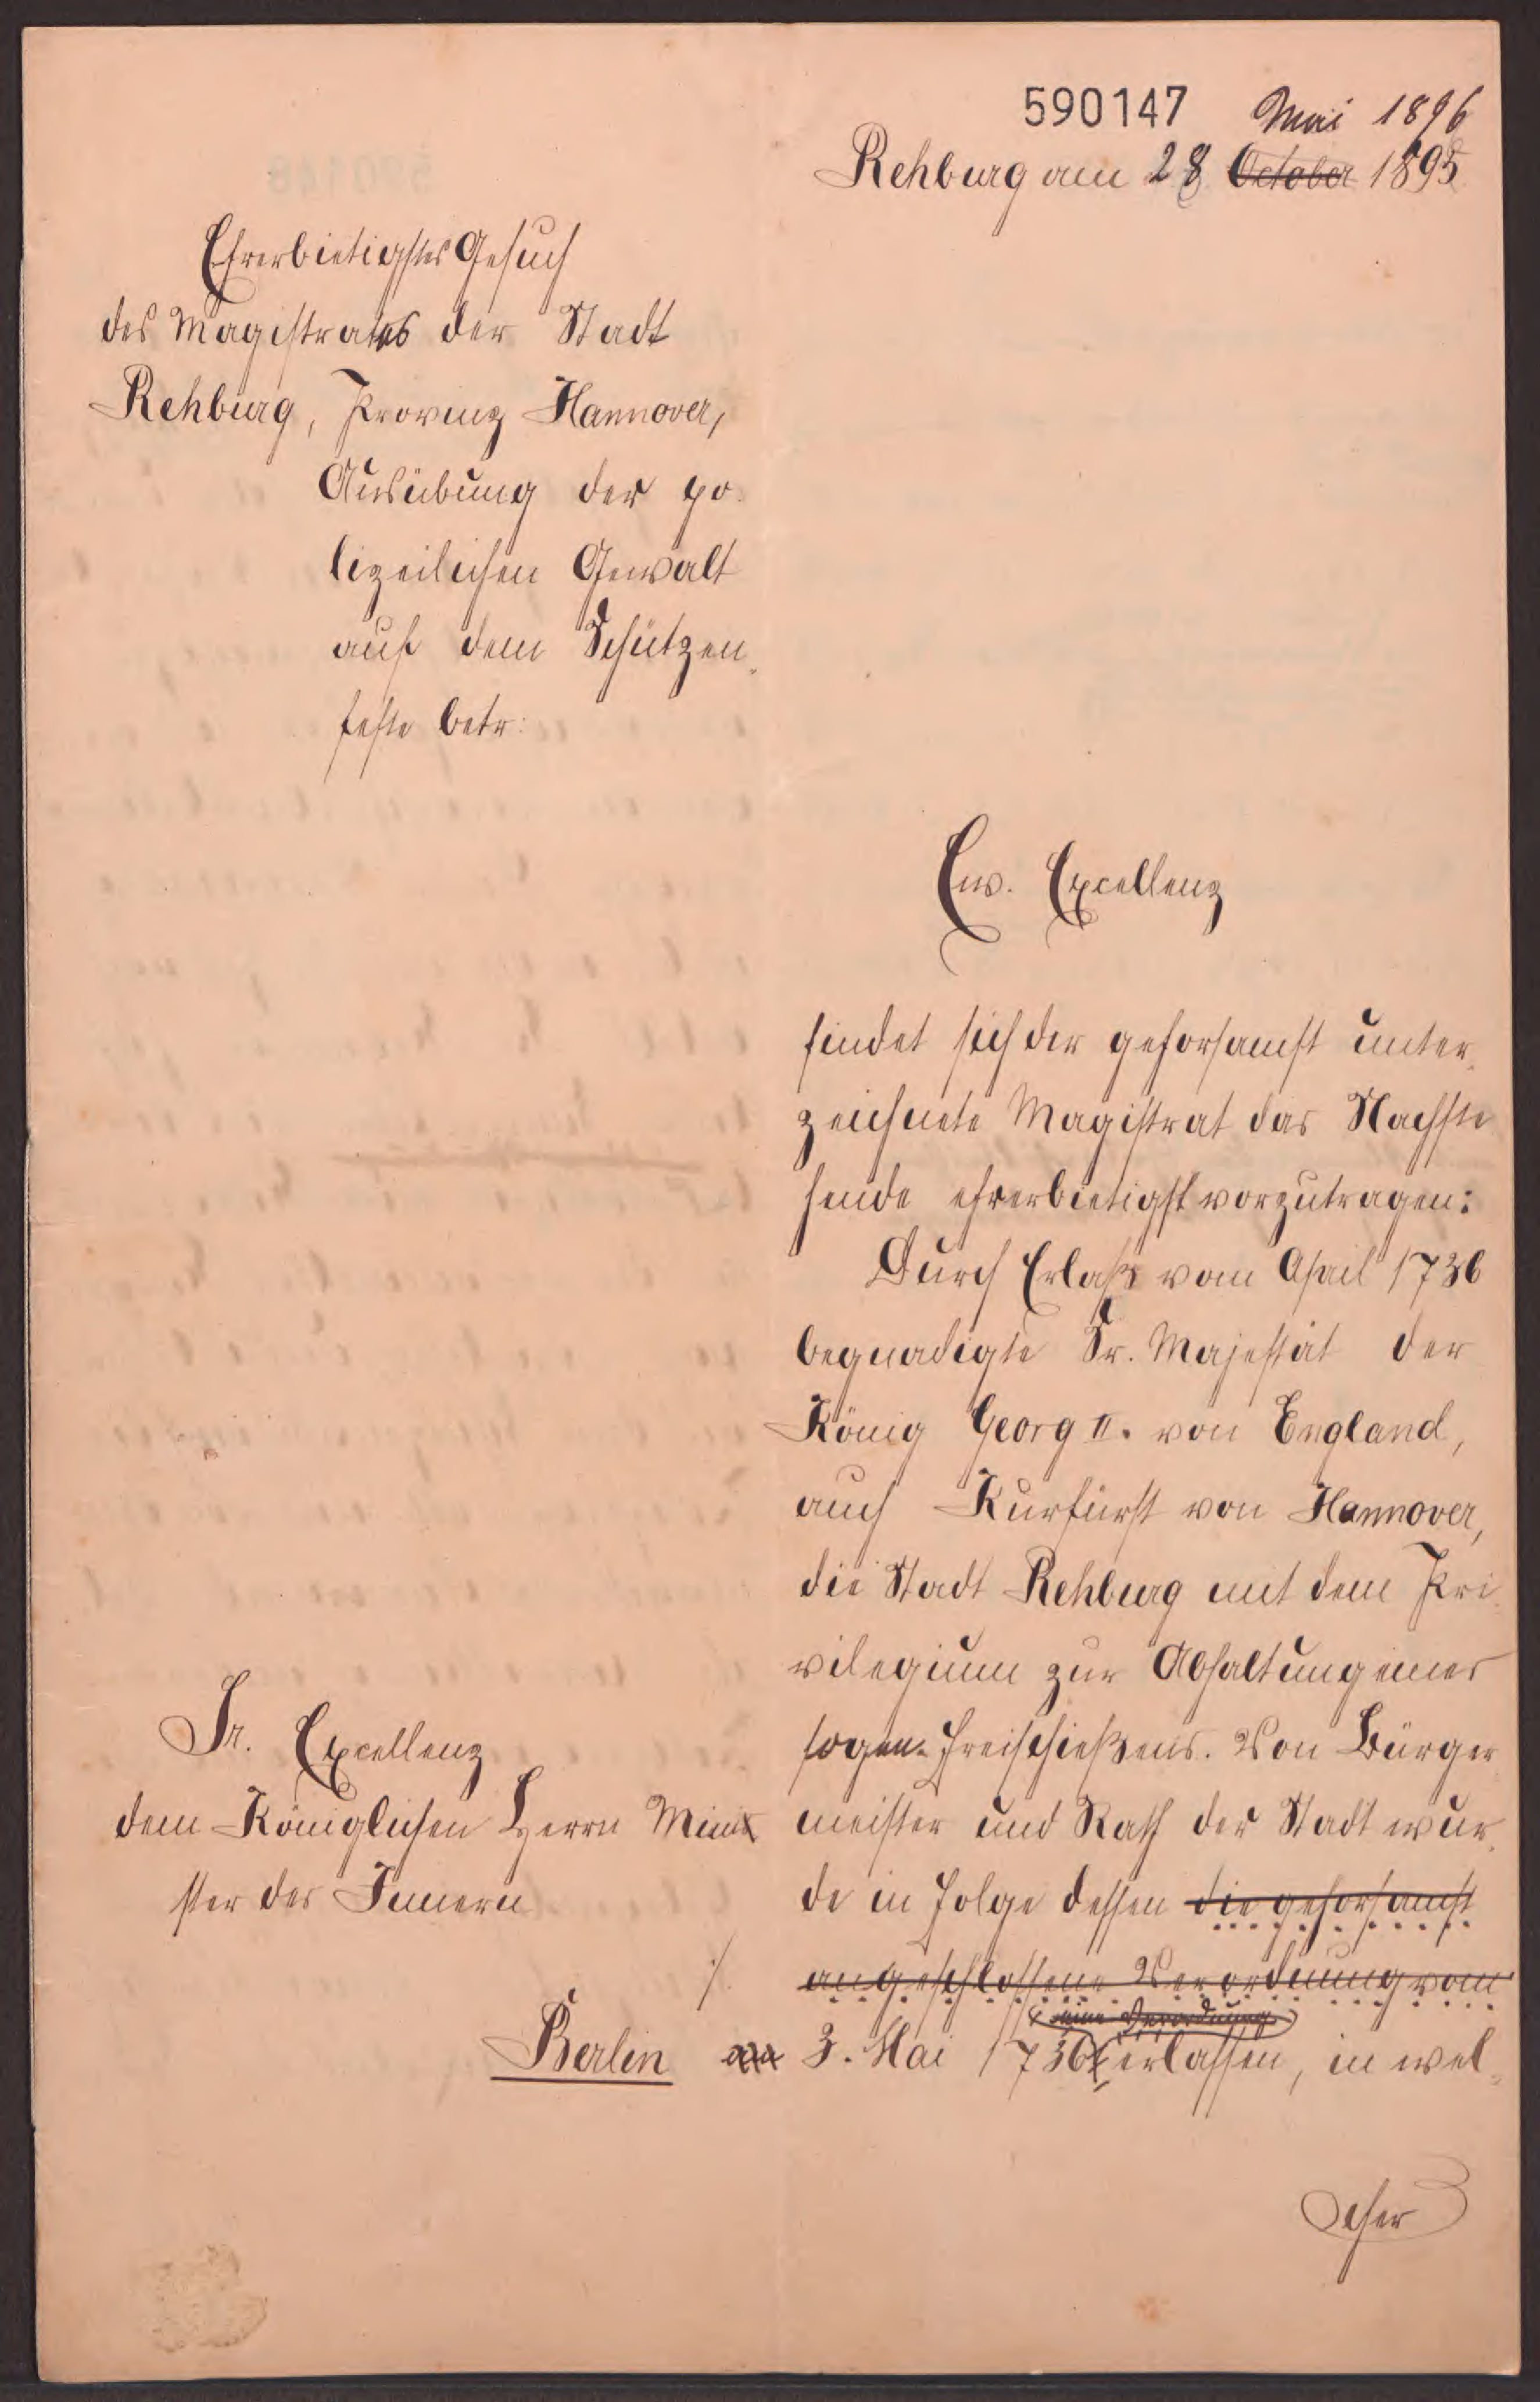 590147 Mai 1896
Rehburg am 28 October 1895
Ehrerbietigstes Gesuch
des Magistrates der Stadt
Rehburg, Provinz Hannover,
Ausübung der po-
lizeilichen Gewalt
auf dem Schützen-
feste betr:
Ew. Excellenz
findet sich der gehorsamst unter-
zeichnete Magistrat das Nachste
hende ehrerbietigst vorzutragen:
Durch Erlaß vom April 1736
begnadigte Sr. Majestät der
König Georg II. von England,
auch Kurfürst von Hannover,
die Stadt Rehburg mit dem Pri-
vilegium zur Abhaltung eines
sogen. Freischießens. Von Bürger-
meister und Rath der Stadt wur-
de in Folge dessen die gehorsamst
angeschlossene Verordnung vom
eine Verordnung
3. Mai 1736 erlassen, in wel-
cher
Sr. Excellenz
dem Königlichen Herrn Mini
ster des Innern
Berlin